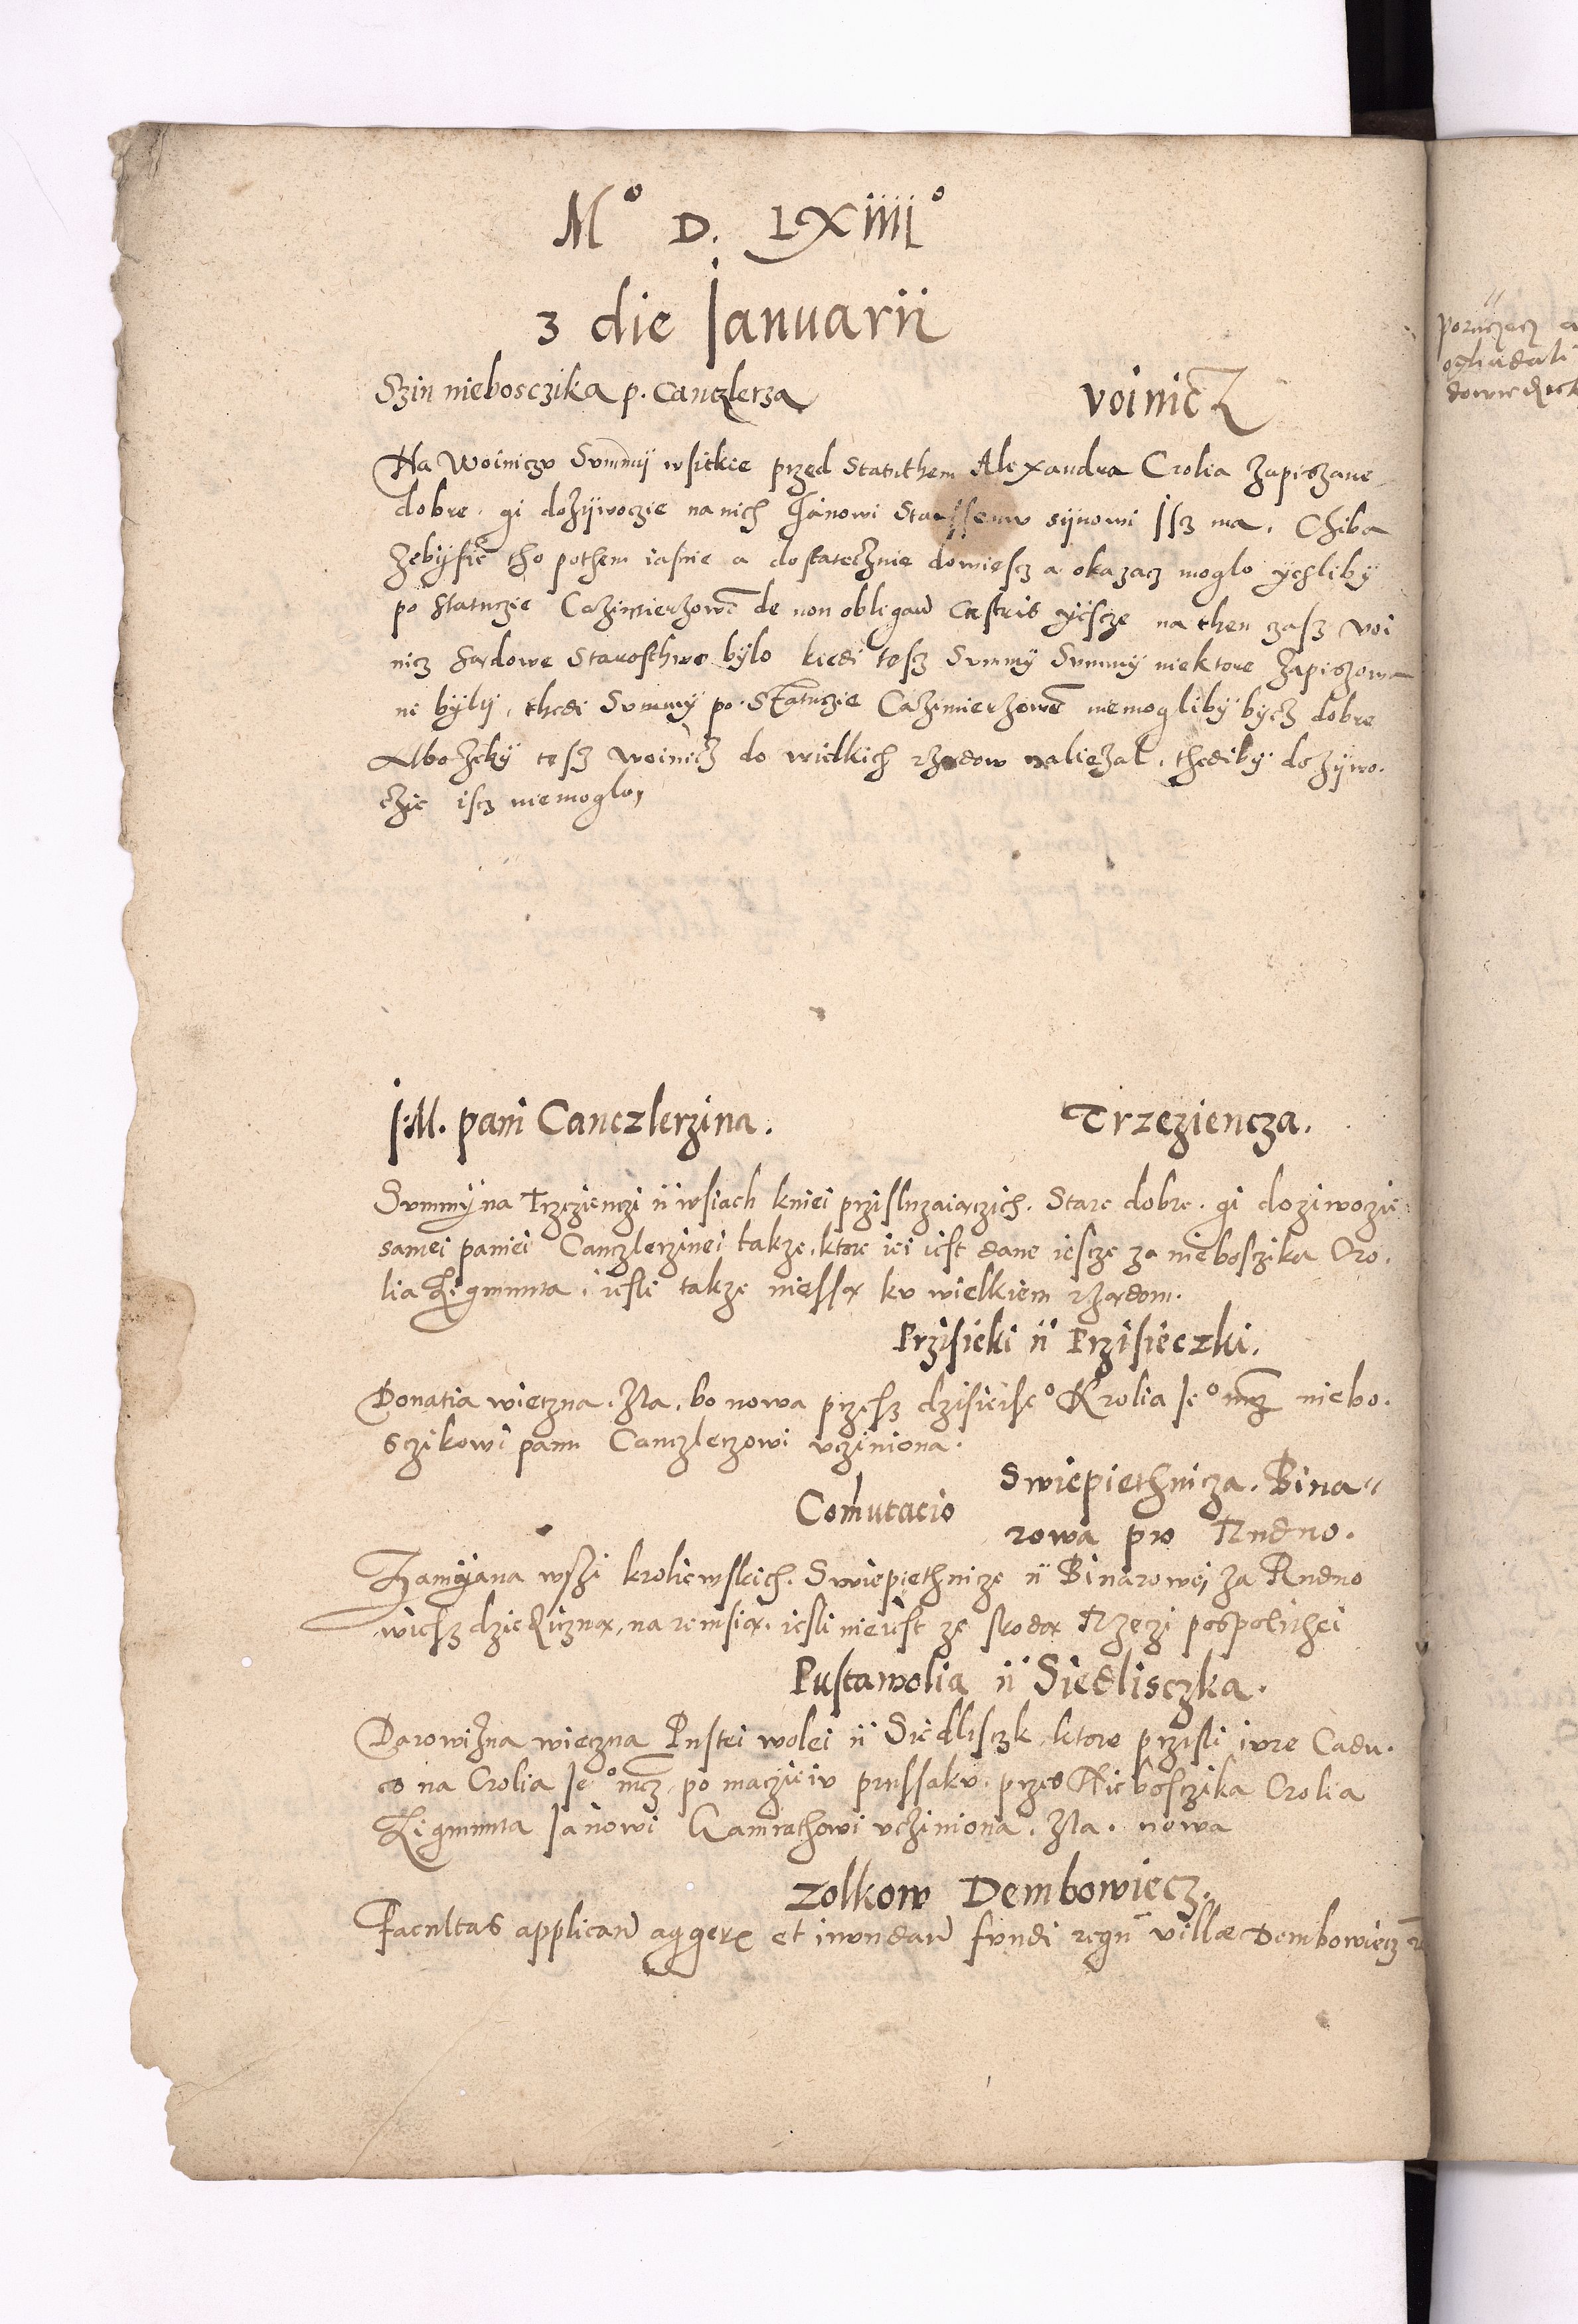 Mº D. LXiiiiº
3 die Januarii
Szin niebosczika p. Canczlerza
Voinicz
Na Woiniczu Summÿ wsitkie przed Statuthem Alexandra Crolia zapiszane
dobre. gi dożÿwoczie na nich Janowi Starssemu sÿnowi Jsz ma. Chiba
żebÿsie tho pothem iasnie a dostatecżnie dowiescz a okazacz moglo ÿesliby
po Statuczie Cazimierzowē de non obligand Castris ÿescze na then czasz Voi
nicz Sadowe Starosthwo bÿlo kiedi tesz Summÿ Summÿ niektore zapiszow
ni bÿlÿ, thedi Summÿ po Statuczie Cazimierzowē niemoglibÿ bÿcz dobre
Albo żebÿ tesz Woinicz do wielkich rządow nalieżal, thedibÿ dożÿwo.
czie iscz niemoglo,
J. M. pani Canczlerzina.
Trzeziencza.
Summÿ na Trzezienczi ÿ wsiach kniei przisluzaiączich. Stare dobre. gi doziwozie
samei paniei Canczlerzinei takze, ktore iei iest dane iescze za nieboszika Cro.
lia Zigmunta, iesli takze niessą ku wielkiem rządom.
Przisieki ÿ Przisieczki.
Donatia wieczna. Zla. bo nowa przesz dzisieisºe Krolia Jeº mcz niebo.
sczikowi panu Canczlerzowi vcziniona.
Comutacio
Swiepiethnicza. Bina
rowa pro Rudno.
Zamÿana wszi kroliewskich. Swiepiethnicze ÿ Binarowei za Rudno
wiesz dziedziczną, na remsią. iesli nieiest ze skodą Rzeczi pospolithei
Pustawolia ÿ Siedlisczka.
Darowizna wieczna Pustei wolei ÿ Siedlisczk ktore przisli iure Cadu.
co na Crolia Jeº mcz, po maczieiu prussaku. przes Niebosczika Crolia
Zigmunta Janowi Gamrathowi vcziniona. Zla. nowa
Zolkow Dembowiecz.
Facultas applicand agger et inundand fundi regn villæ Dembowiecz
poruczecz
ogliadali